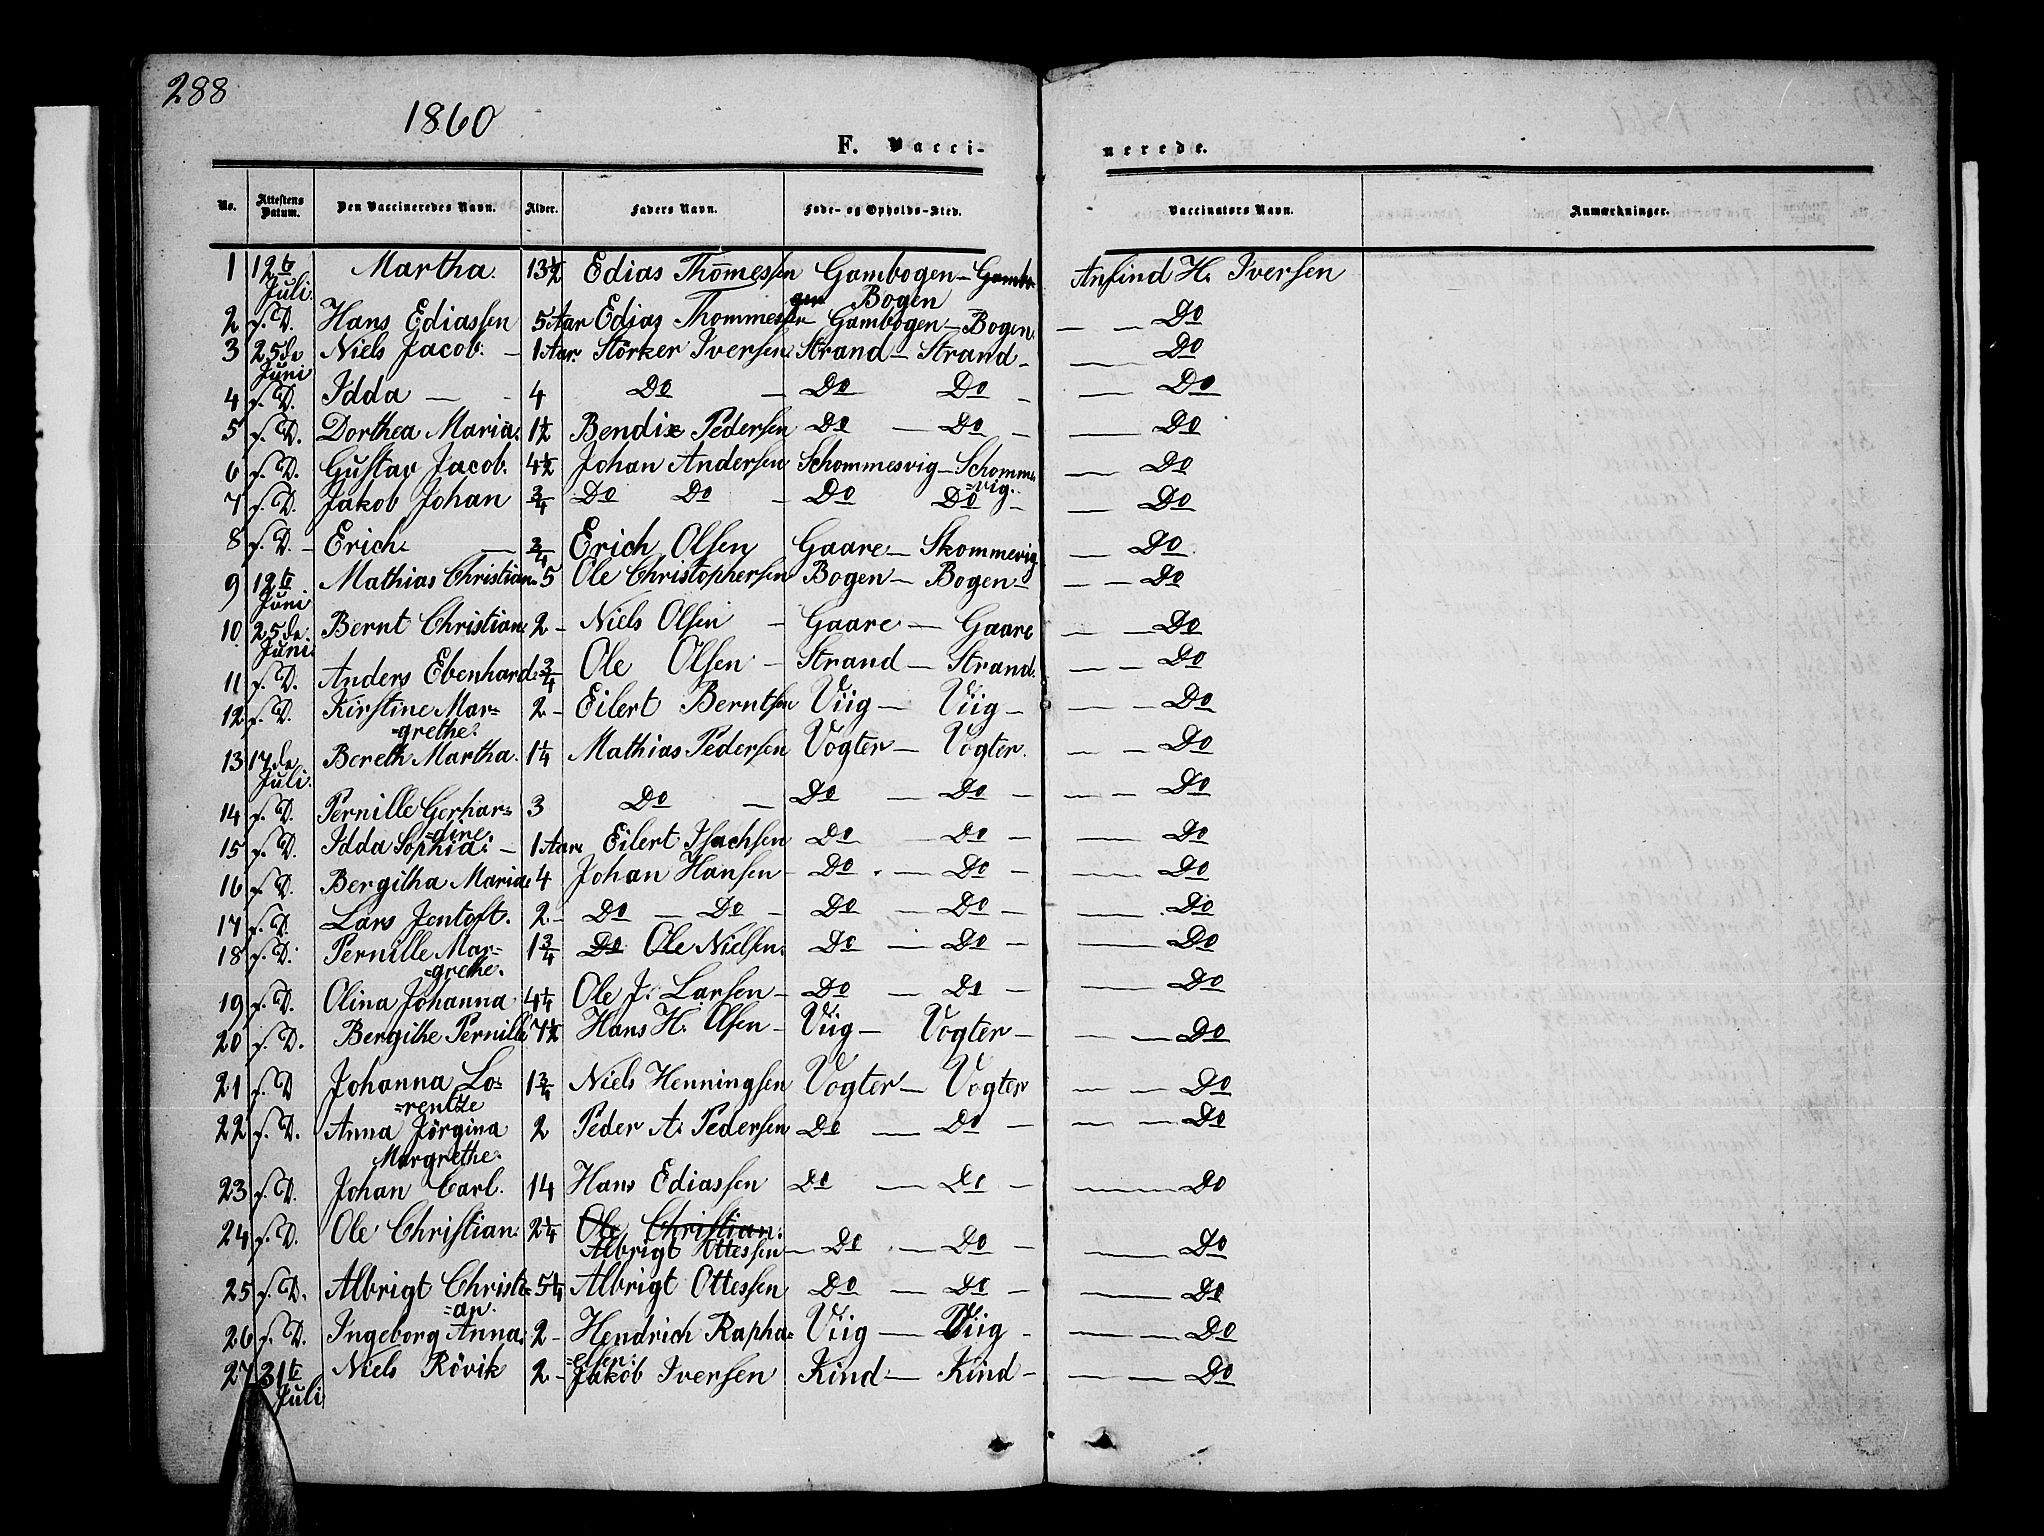 288
1860
F. Vacci-
nerede.
No. Attestens Datum. Den Vaccineredes Navn. Alder. Faders Navn. Føde- og Opholds-Sted. Vaccinators Navn. Anmærkninger.
1 12te Martha. 13½ Edias Thom̄essen Gambogen - Gambo Anfind H. Iversen
Juli. gen Bogen
2 f. D. Hans Ediassen 5 Aar Edias Thommessen Gambogen - Bogen. — — Do
3 25de Niels Jacob. - 1 Aar. Störker Iversen. Strand - Strand - — Do
Juni
4 f. D. Idda — - 4 Do - Do Do - — Do
5 f. D. Dorthea Maria. 1½ Bendix Pedersen Do — Do - — Do
6 f. D. Gustav Jacob. 4½ Johan Andersen Schommesvig - Schomme — Do
7 f. D. Jakob Johan ¾ Do Do - Do =vig. Do - — Do
8 f. D. - Erich. — ¾ Erich Olsen Gaare - Skommevig. — Do.
9 12te Mathias Christian 5 Ole Christophersen Bogen - Bogen - — — Do
Juni
10. 25de Bernt Christian. 2 - Niels Olsen - Gaare — Gaare — — Do
Juni.
11 f. D. Anders Ebenhard. ¾ Ole Olsen - Strand — Strand. — — Do
12 f. D. Kirstine Mar= 2 - Eilert Berntsen Viig — Viig - — — Do
=grethe.
13 17de Bereth Martha. 1¼ Mathias Pedersen Vogter - Vogter. — — Do
Juli.
14 f. D. Pernille Gerhar= 3 Do — Do — Do - — — Do
=dine.
15 f. D. Idda Sophia. - 1 Aar. Eilert Isachsen Do — Do - — Do
16 f. D. Bergitha Maria. 4 Johan Hansen - Do . — Do - — Do
17 f. D. Lars Jentoft. 2 - Do — Do - Do — Do - — Do
18 f. D. Pernille Mar= 1¾ Do Ole Nielsen. Do - Do - — Do
=grethe.
19 f. D. Olina Johanna 4¼ Ole J. Larsen - Do — Do - — Do
20 f. D. Bergithe Pernille 7½ Hans H. Olsen - Viig — Vogter - — — Do
21 f. D Johanna Lo= 1¾ Niels Henningsen Vogter — Vogter — — Do
=rentze
22 f. D. Anna Jörgina 2 Peder A. Pedersen Do — Do - — — Do
Margrethe.
23 f. D. Johan Carl. 14 Hans Ediassen Do — Do - — Do
24 f. D. Ole Christian. 2¼ Ole Christian.
Albrigt Ottessen — Do . — Do - — Do
25 f. D. Albrigt Christi= 5¼ Albrigt Ottessen Do — Do - — Do
=an.
26 f. D. Ingeborg Anna. 2 - Hendrich Rapha= Viig — Viig - — — Do
=elsen.
27 31te Niels Rövik 2 - Jakob Iversen Kind — Kind - — — Do
Juli